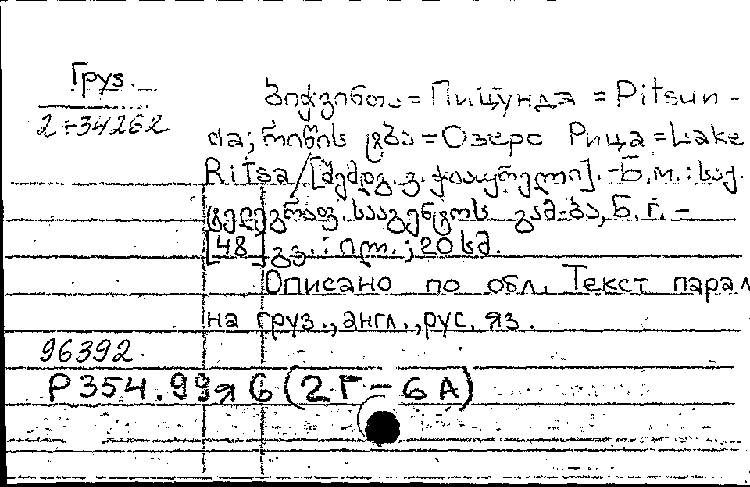 Груз.
2-34262
ბიჭვინთა = Пицунда = Pitsun-
da; რიწის ტბა = Озеро Рица = Lake
Ritsa / [შემდგ. ვ. ჭიაურელი]. - Б.м.: საქ.
ტელეგრაფ. სააგენტოს გამ-ბა, Б.г. -
[48] გვ.: ილ.; 20 სმ.
Описано по обл. Текст парал
на груз., англ., рус. яз.
96392.
Р354.99я6(2Г-6А)